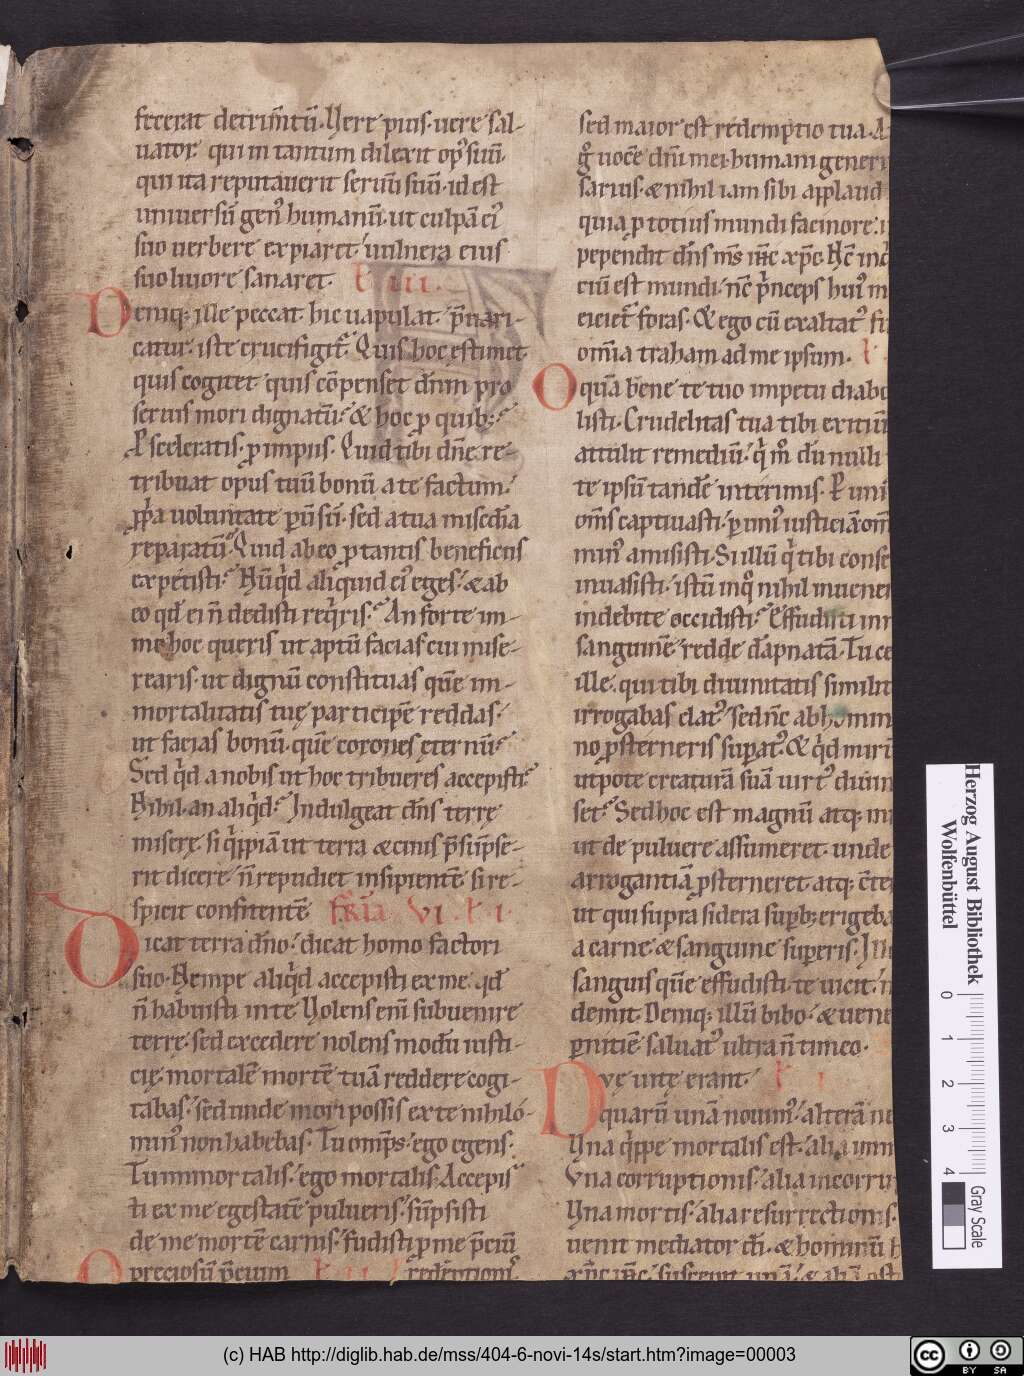 fecerat detrim̄tū. Uere pius. uere sal-
uator. qui in tantum dilexit op⁹ suū.
qui ita reputauerit seruū suū. id est
uniuersū gen⁹ humanū. ut culpā ei⁹
suo uerbere expiaret. uulnera eius
suo liuore sanaret. ł. iii.
Deniq; ille peccat. hic uapulat. p̄uari-
catur iste crucifigit̄. Quis hoc estimet
quis cogitet quis cōpenset dn̄m pro
seruis mori dignatū. & hoc ꝓ quib;
ꝓ sceleratis. ꝓ impiis. Quid tibi dn̄e re-
tribuat opus tuū bonū a te factum.
ꝓp̄a uoluntate ꝑditū. sed a tua mis̄c̄dia
reparatū. Quid ab eo ꝓ tantis beneficiis
expetisti. Nūqd aliquid ei⁹ eges. & ab
eo qd ei n̄ dedisti reqris. An forte in
me hoc queris ut aptū facias cui mise-
rearis. ut dignū constituas quē im-
mortalitatis tuę participē reddas.
ut facias bonū. quē corones ęternū.
Sed qd a nobis ut hoc tribueres accepisti.
Nihil. an aliqd. Indulgeat dn̄s terrę
miserę. si qppiā ut terra & cinis p̄sūpse-
rit dicere. n̄ repudiet insipientē si re-
spicit confitentē f̄r̄ia VI. ł. i.
Dicat terra dn̄o. dicat homo factori
suo. Nempe aliqd accepisti ex me. qd
n̄ habuisti in te. Uolens enī subuenire
terre. sed excedere nolens modū iusti-
cię. mortalē mortē tuā reddere cogi-
tabas. sed unde mori possis ex te nihilo-
min⁹ non habebas. Tu omp̄s. ego egens.
Tu inmortalis. ego mortalis. Accepis-
ti ex me egestatē pulueris. sūpsisti
de me mortē carnis. fudisti ꝓ me p̄ciū
preciosū p̄cium ł. ii. redēptionis
sed maior est redemptio tua. A
g° uocē dn̄i mei. humani generi
sarius. & nihil iam sibi applaud
quia ꝓ totius mundi facinore. i
pependit dn̄s m̄s ih̄c xp̄c. Nc̄ iudi
ciū est mundi. nc̄ p̄nceps hui⁹ m
eiciet̄ foras. & ego cū exaltat⁹ fu
omīa traham ad me ipsum. ł.
O quā bene te tuo impetu diabo
listi. Crudelitas tua tibi exitiū
attulit remediū. q̄ m° dū nulli
te ipsū tandē interimis. Per uni
om̄s captiuasti. ꝑ uni⁹ iusticiā om
min⁹ amisisti. Si illū q̄ tibi conse
inuasisti. istū in q° nihil inuener
indebite occidisti. Effudisti inn
sanguinē. redde dapnatā. Tu ce
ille. qui tibi diuinitatis similit
irrogabas elat⁹. sed nc̄ ab homin
no ꝓsterneris supat⁹. & qd mirū
utpote creaturā suā uirt⁹ diuin
set. Sed hoc est magnū atq; mi
ut de puluere assumeret. unde
arrogantiā ꝓsterneret. atq; c̄te
ut qui supra sidera supb; erigeba
a carne & sanguine superis. Ille
sanguis quē effudisti. te uicit. n
demit. Deniq; illū bibo. & uene
ꝑnitiē saluat⁹ ultra n̄ timeo.
Duę uitę erant. ł. i
quarū unā nouim⁹. alterā ne
Una qppe mortalis est. alia imm
Una corruptionis. alia incorru
Una mortis. alia resurrectionis.
uenit mediator di. & hominū h
xp̄c ih̄c. suscepit unā. & aliā ost
Herzog August Bibliothek
Wolfenbüttel
0 1 2 3 4
Gray Scale
(c) HAB http://diglib.hab.de/mss/404-6-novi-14s/start.htm?image=00003
cc BY SA